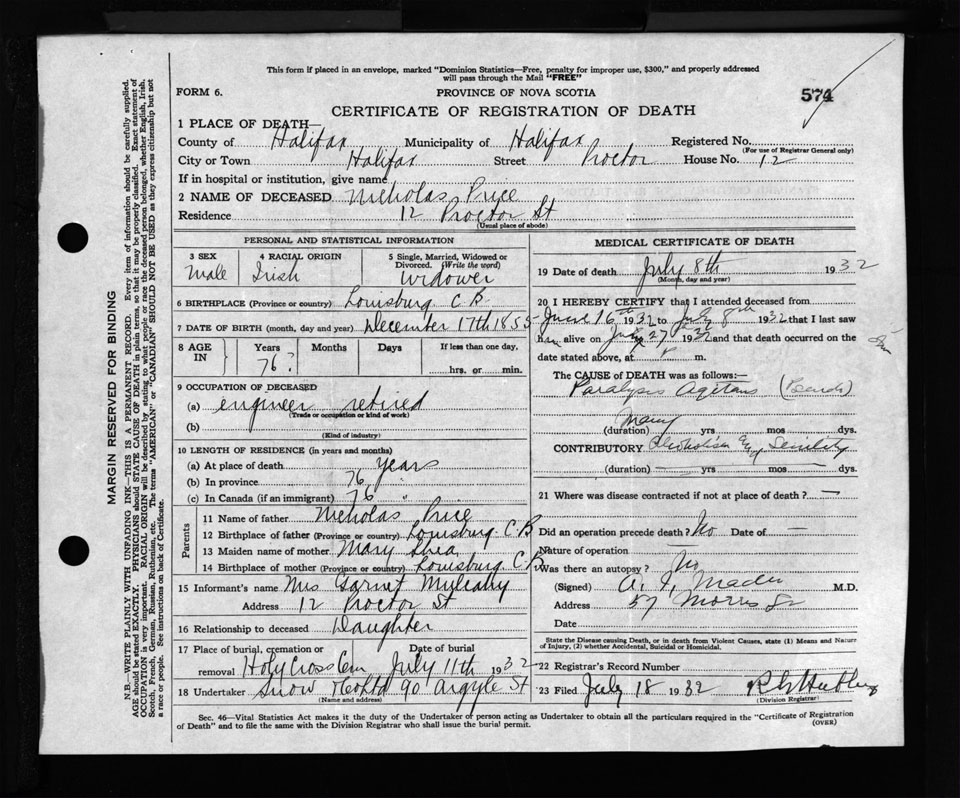 This form if placed in an envelope, marked "Dominion Statistics—Free, penalty for improper use, $300," and properly addressed
will pass through the Mail "FREE"
FORM 6.
PROVINCE OF NOVA SCOTIA
574
CERTIFICATE OF REGISTRATION OF DEATH
1 PLACE OF DEATH—
County of Halifax Municipality of Halifax Registered No.
(For use of Registrar General only)
City or Town Halifax Street Proctor House No. 12
If in hospital or institution, give name
2 NAME OF DECEASED Nicholas Price
Residence 12 Proctor St
(Usual place of abode)
PERSONAL AND STATISTICAL INFORMATION
3 SEX Male
4 RACIAL ORIGIN Irish
5 Single, Married, Widowed or Divorced. (Write the word) Widower
6 BIRTHPLACE (Province or country) Louisburg C.B
7 DATE OF BIRTH (month, day and year) December 17th 1855
8 AGE IN Years 76 Months Days If less than one day, hrs. or min.
9 OCCUPATION OF DECEASED
(a) engineer retired
(Trade or occupation or kind of work)
(b)
(Kind of industry)
10 LENGTH OF RESIDENCE (in years and months)
(a) At place of death years
(b) In province 76 "
(c) In Canada (if an immigrant) 76 "
Parents
11 Name of father Nicholas Price
12 Birthplace of father (Province or country) Louisburg C.B
13 Maiden name of mother Mary Shea
14 Birthplace of mother (Province or country) Louisburg C.B
15 Informant's name Mrs Garnet Mulcahy
Address 12 Proctor St
16 Relationship to deceased Daughter
17 Place of burial, cremation or removal Holy Cross Cem Date of burial July 11th 1932
18 Undertaker Snow & Co Ltd 90 Argyle St
(Name and address)
MEDICAL CERTIFICATE OF DEATH
19 Date of death July 8th 1932
(Month, day and year)
20 I HEREBY CERTIFY that I attended deceased from
June 16th 1932 to July 8th 1932 that I last saw
him alive on July 7 1932 and that death occurred on the
date stated above, at P m.
The CAUSE of DEATH was as follows:—
Paralysis Agitans
Many
(duration) yrs mos dys.
CONTRIBUTORY Senility
(duration) — yrs — mos — dys.
21 Where was disease contracted if not at place of death? —
Did an operation precede death? No Date of —
Nature of operation —
Was there an autopsy? No
(Signed) A. I. Mader M.D.
Address 57 Morris St
Date
State the Disease causing Death, or in death from Violent Causes, state (1) Means and Nature
of Injury, (2) whether Accidental, Suicidal or Homicidal.
22 Registrar's Record Number
23 Filed July 18 1932
(Division Registrar)
Sec. 46—Vital Statistics Act makes it the duty of the Undertaker or person acting as Undertaker to obtain all the particulars required in the "Certificate of Registration
of Death" and to file the same with the Division Registrar who shall issue the burial permit.
(OVER)
MARGIN RESERVED FOR BINDING
N.B.—WRITE PLAINLY WITH UNFADING INK—THIS IS A PERMANENT RECORD. Every item of information should be carefully supplied.
AGE should be stated EXACTLY. PHYSICIANS should STATE CAUSE OF DEATH in plain terms, so that it may be properly classified. Exact statement of
OCCUPATION is very important. RACIAL ORIGIN will be described by stating to what people or race the deceased person belonged, whether English, Irish,
Scotch, French, German, Russian, Ruthenian, etc. The terms "AMERICAN" or "CANADIAN" SHOULD NOT BE USED as they express citizenship but not
a race or people. See instructions on back of Certificate.